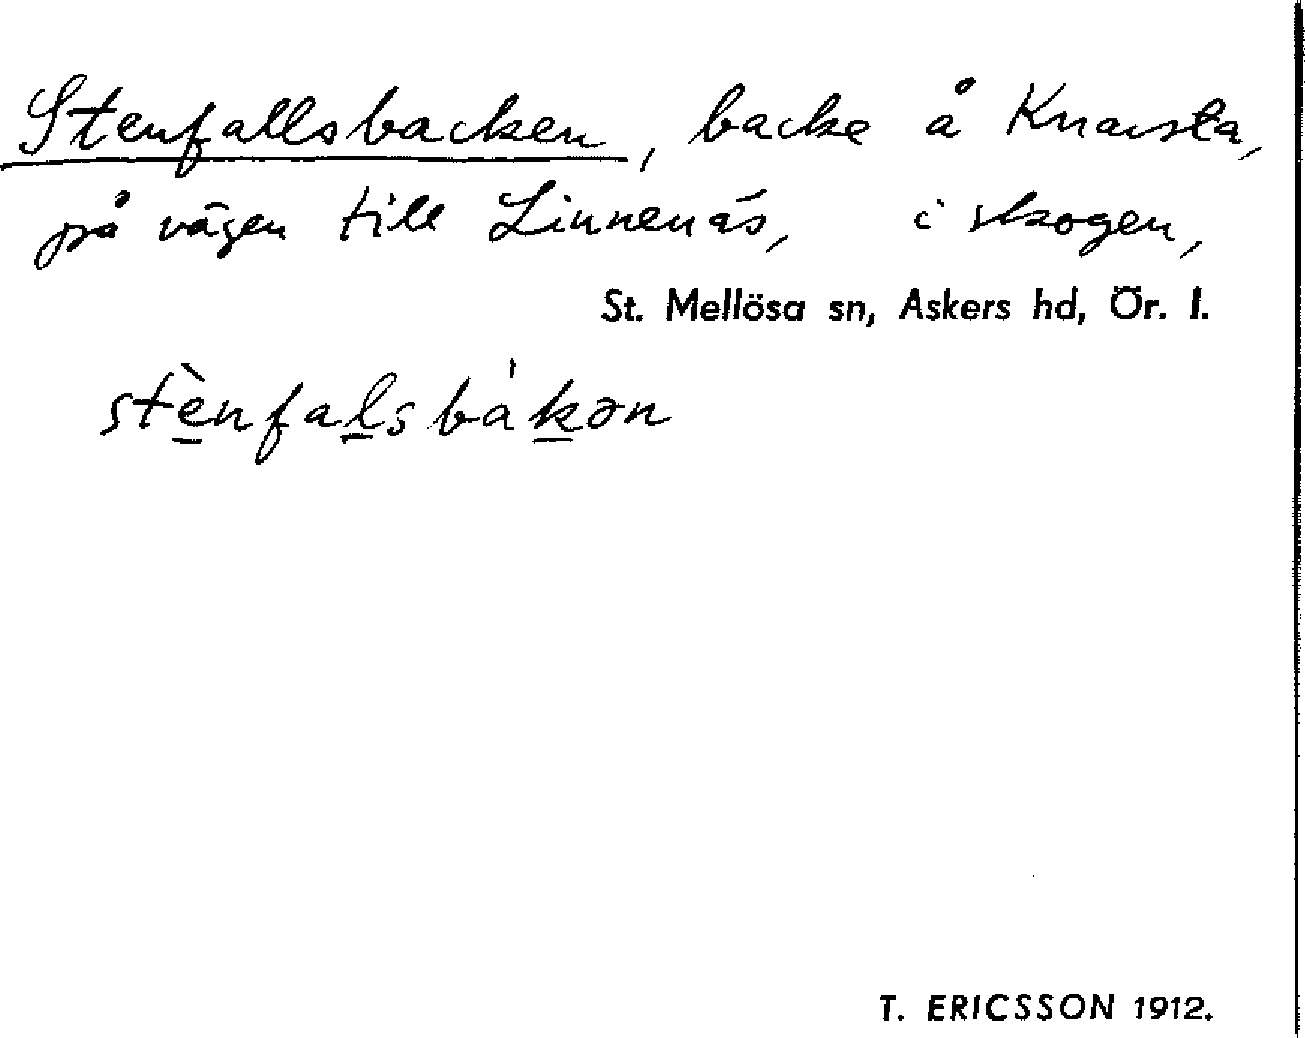 Stenfallsbacken, backe å Knavsta,
på vägen till Linnenäs, i skogen,
St. Mellösa sn, Askers hd, Ör. l.
stènfalsbákən
T. ERICSSON 1912.